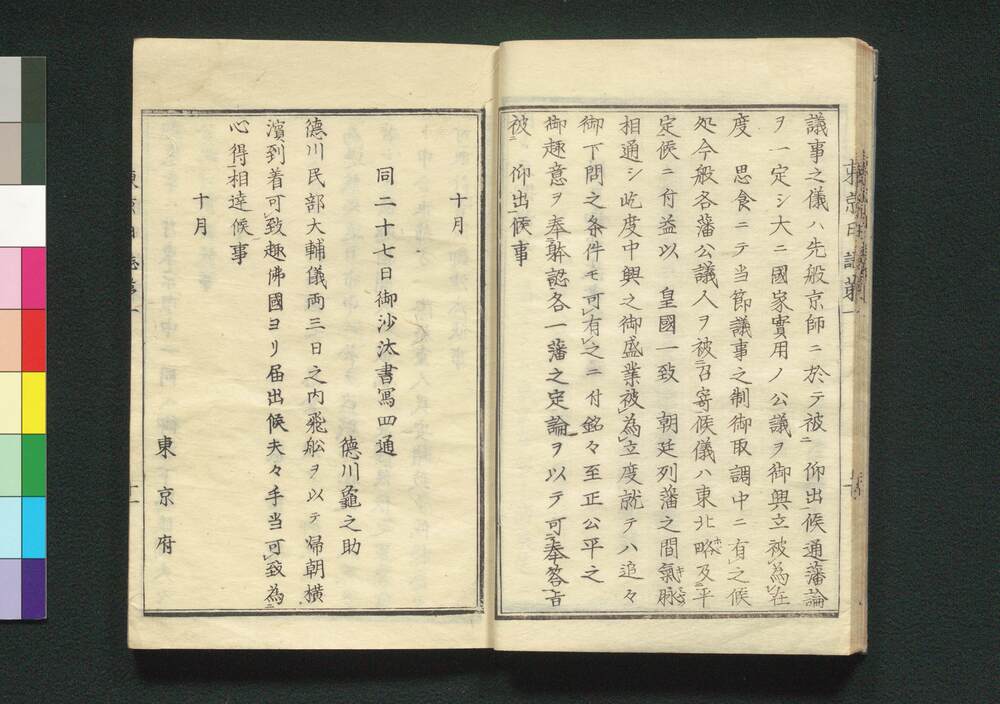 議事之儀ハ先般京師ニ於テ被ニ 仰出候通藩論
ヲ一定シ大ニ國家實用ノ公議ヲ御興立被為在
度 思食ニテ当節議事之制御取調中ニ有之候
処今般各藩公議人ヲ被召寄候儀ハ東北略及平
定候ニ付益以 皇國一致 朝廷列藩之間氣脉
相通シ屹度中興之御盛業被為立度就テハ追々
御下問之条件モ可有之ニ付銘々至正公平之
御趣意ヲ奉躰認各一藩之定論ヲ以テ可奉答旨
被 仰出候事
十月
同二十七日御沙汰書寫四通
德川龜之助
德川民部大輔儀両三日之内飛舩ヲ以テ帰朝横
濱到着可致趣佛國ヨリ届出候夫々手当可致為
心得相達候事
十月
東京府